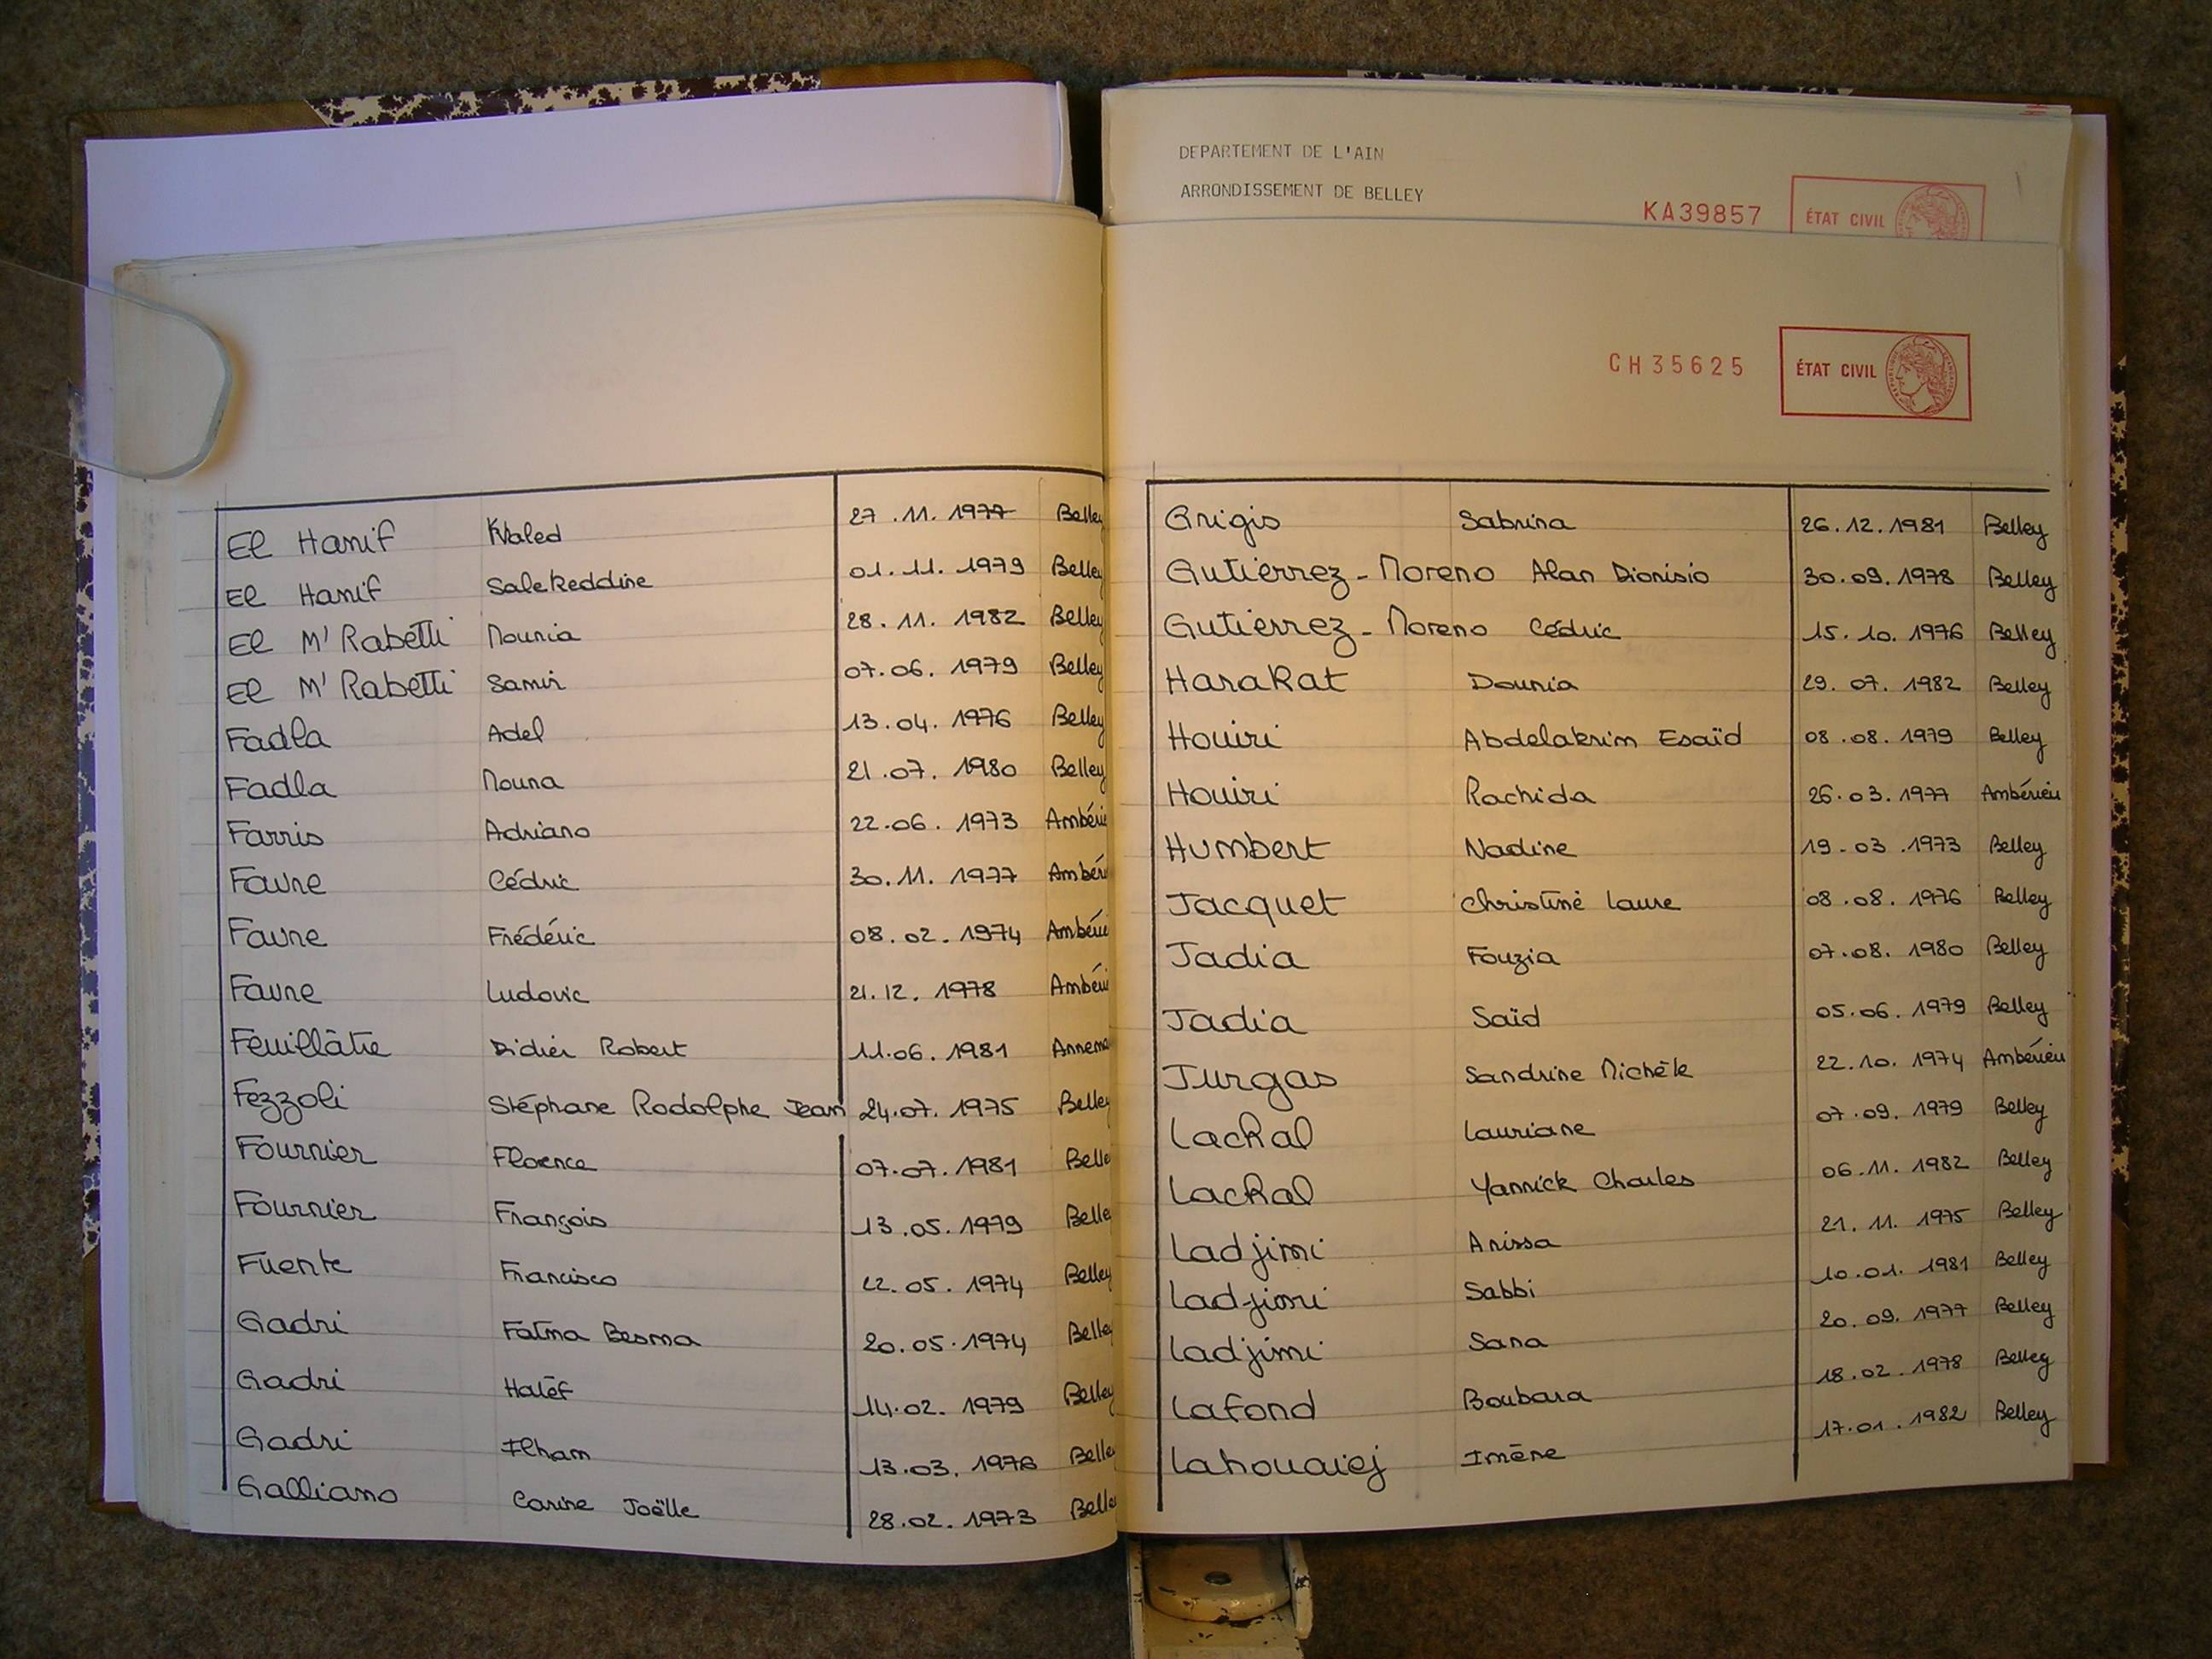 El Hanif Khaled 27.11.1977 Belley
El Hanif Salekeddine 01.11.1979 Belley
El M'Rabetti Mounia 28.11.1982 Belley
El M'Rabetti Samir 07.06.1979 Belley
Fadla Adel 13.04.1976 Belley
Fadla Mouna 21.07.1980 Belley
Farris Adriano 22.06.1973 Ambérie
Favre Cédric 30.11.1977 Ambéri
Favre Frédéric 08.02.1974 Ambérie
Favre Ludovic 21.12.1978 Ambérie
Feuillâtre Didier Robert 11.06.1981 Annema
Fezzoli Stéphane Rodolphe Jean 24.07.1975 Belley
Fournier Florence 07.07.1981 Belle
Fournier François 13.05.1979 Belle
Fuente Francisco 22.05.1974 Belley
Gadri Fatma Besma 20.05.1974 Belley
Gadri Halef 14.02.1979 Belley
Gadri Ilham 13.03.1976 Belle
Galliano Carine Joëlle 28.02.1973 Belle
DEPARTEMENT DE L'AIN
ARRONDISSEMENT DE BELLEY
KA39857 ÉTAT CIVIL
CH35625 ÉTAT CIVIL
Grigis Sabrina 26.12.1981 Belley
Gutierrez-Moreno Alan Dionisio 30.09.1978 Belley
Gutierrez-Moreno Cédric 15.10.1976 Belley
Harakat Dounia 29.07.1982 Belley
Houiri Abdelakrim Esaïd 08.08.1979 Belley
Houiri Rachida 26.03.1977 Ambérieu
Humbert Nadine 19.03.1973 Belley
Jacquet Christine Laure 08.08.1976 Belley
Jadia Fouzia 07.08.1980 Belley
Jadia Saïd 05.06.1979 Belley
Jurgas Sandrine Michèle 22.10.1974 Ambérieu
Lackal Lauriane 07.09.1979 Belley
Lackal Yannick Charles 06.11.1982 Belley
Ladjimi Anissa 21.11.1975 Belley
Ladjimi Sabbi 10.01.1981 Belley
Ladjimi Sana 20.09.1977 Belley
Lafond Boubara 18.02.1978 Belley
Lahouaiej Imène 17.01.1982 Belley